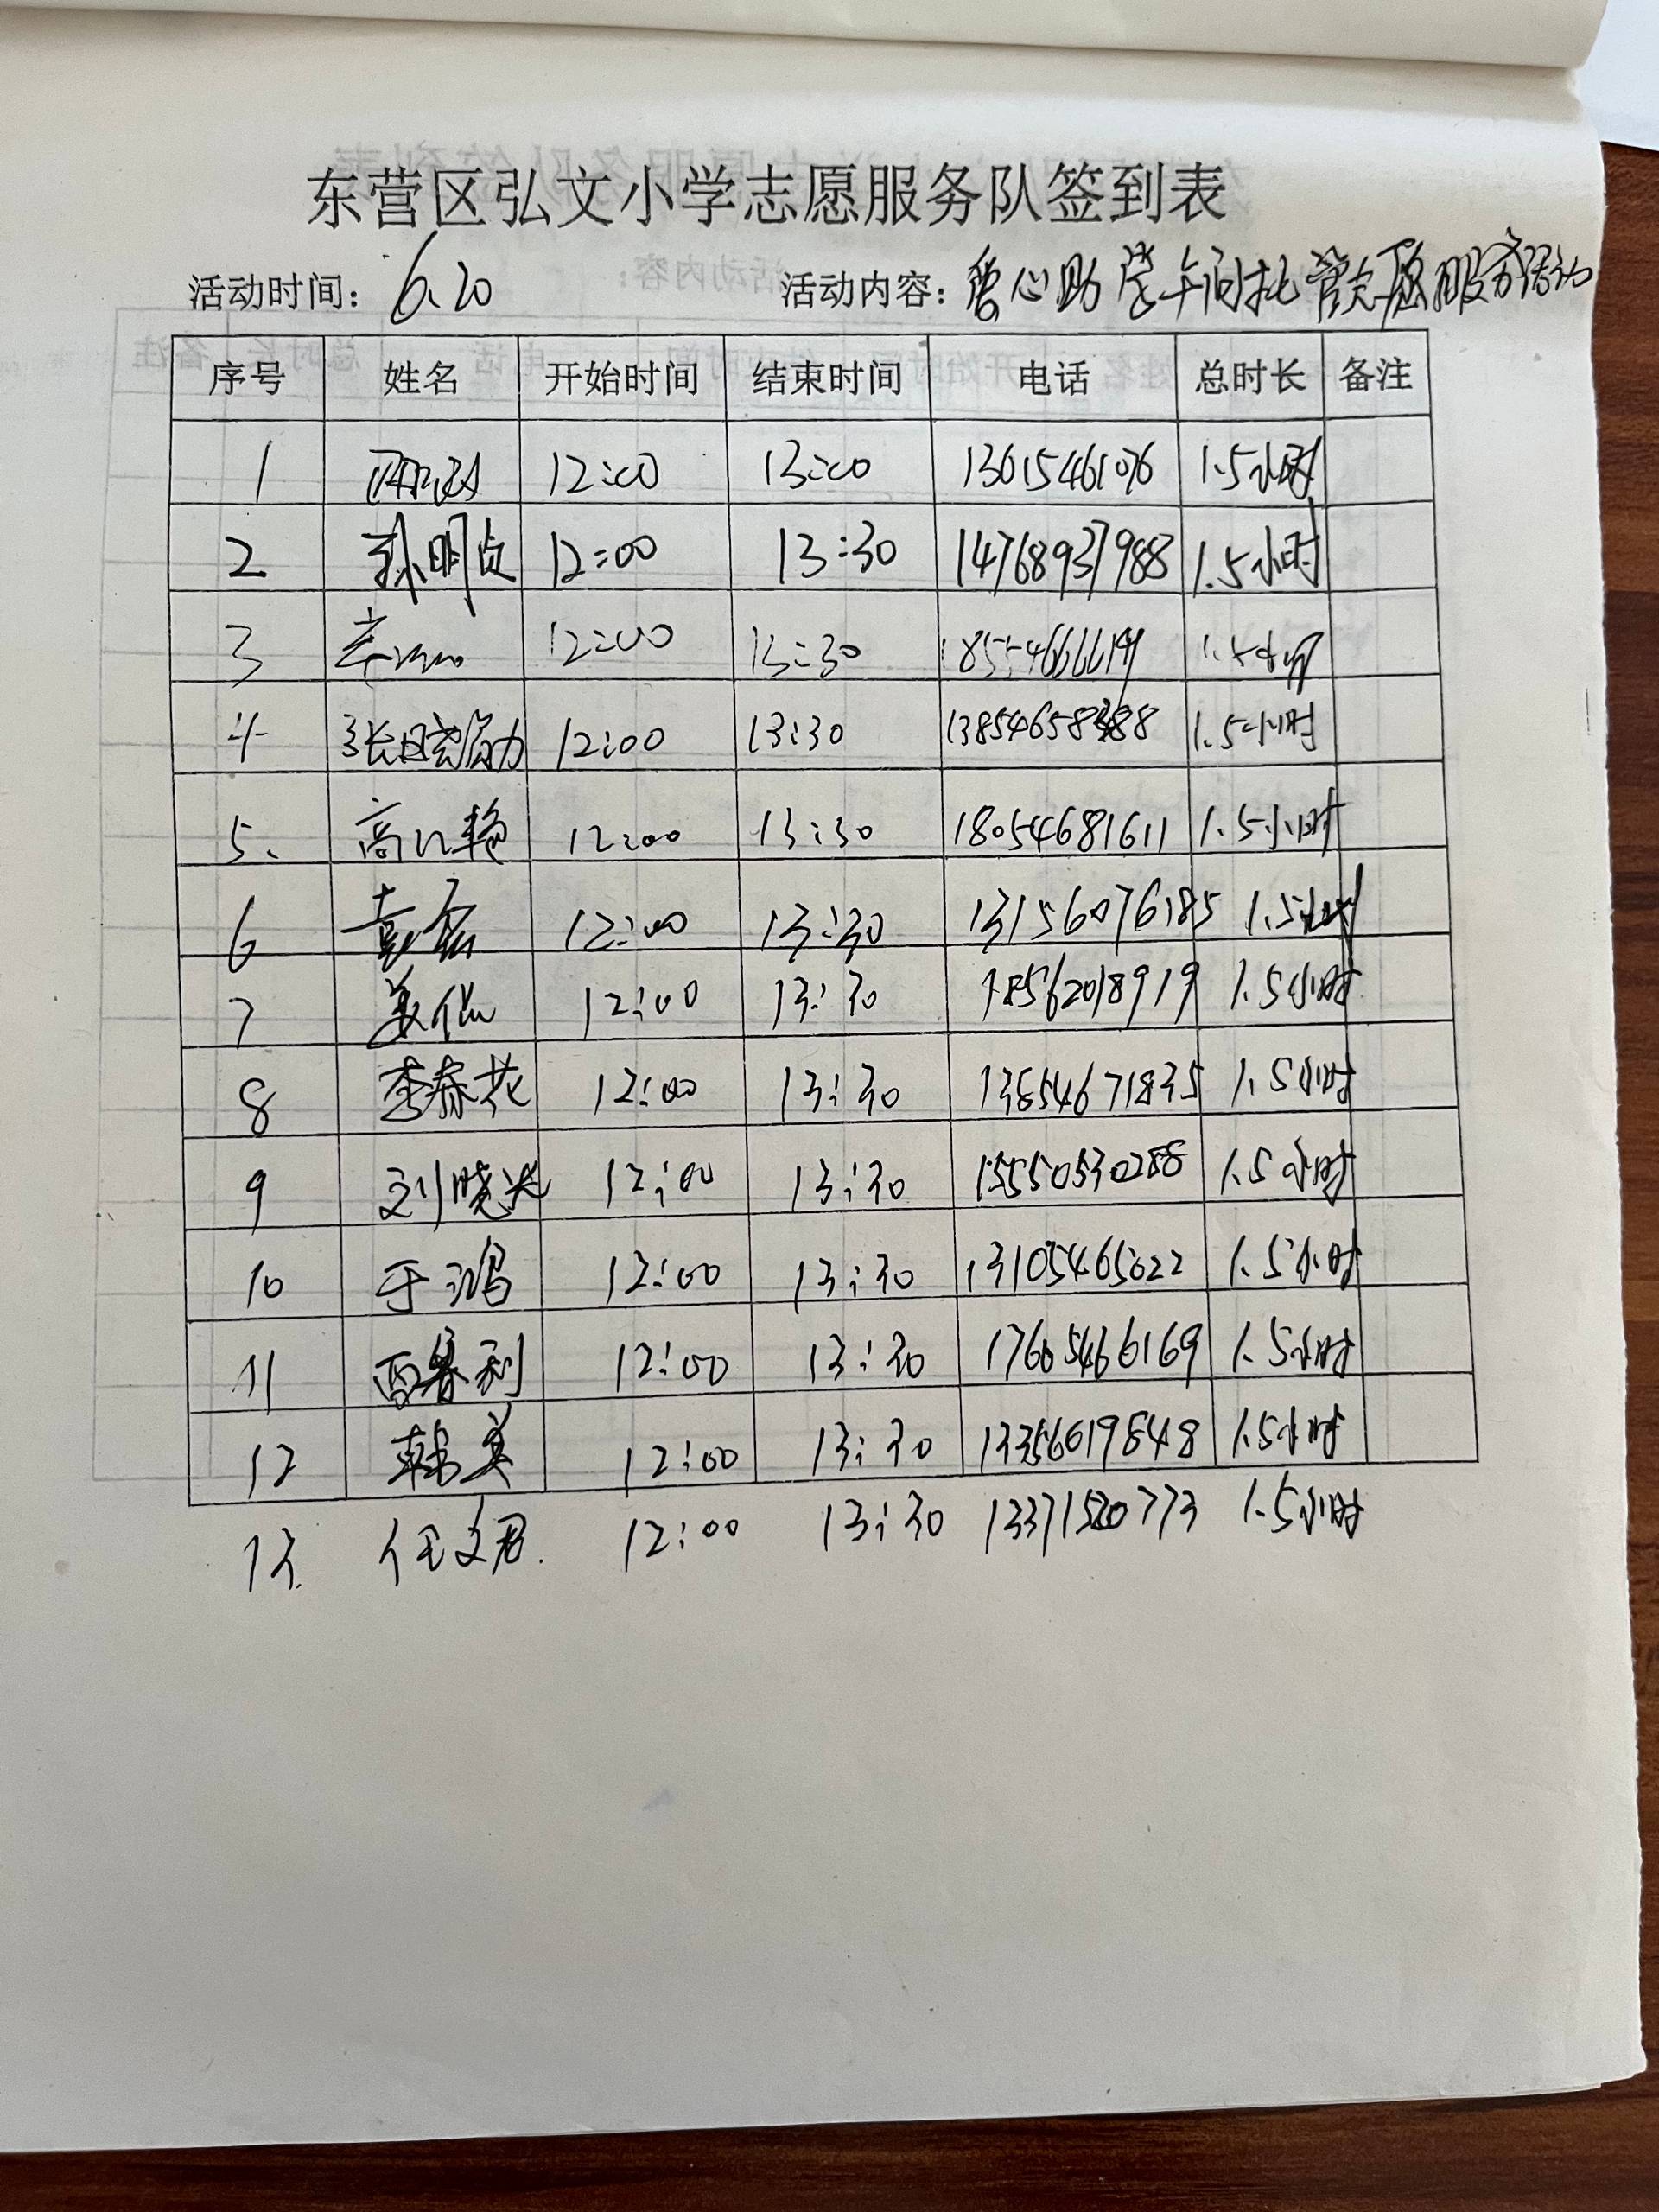 东营区弘文小学志愿服务队签到表
活动时间：6.20 活动内容：爱心助学午间托管志愿服务活动
序号 姓名 开始时间 结束时间 电话 总时长 备注
1 12:00 13:00 13615461076 1.5小时
2 孙明贞 12:00 13:30 14768937988 1.5小时
3 12:00 13:30 1.5小时
4 12:00 13:30 1.5小时
5. 高江艳 12:00 13:30 18054681611 1.5小时
6 袁磊 12:00 13:30 13156076185 1.5小时
7 姜仙 12:00 13:30 18562018919 1.5小时
8 李春花 12:00 13:30 13854671835 1.5小时
9 刘晓 12:00 13:30 15550530288 1.5小时
10 于鸿 12:00 13:30 13105465022 1.5小时
11 西春利 12:00 13:30 17605466169 1.5小时
12 韩美 12:00 13:30 13356619848 1.5小时
13. 任文君. 12:00 13:30 13371520773 1.5小时